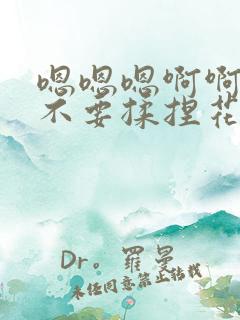 嗯嗯嗯啊啊
不要揉捏花
Dr。羅曼
未任同意禁止轉載